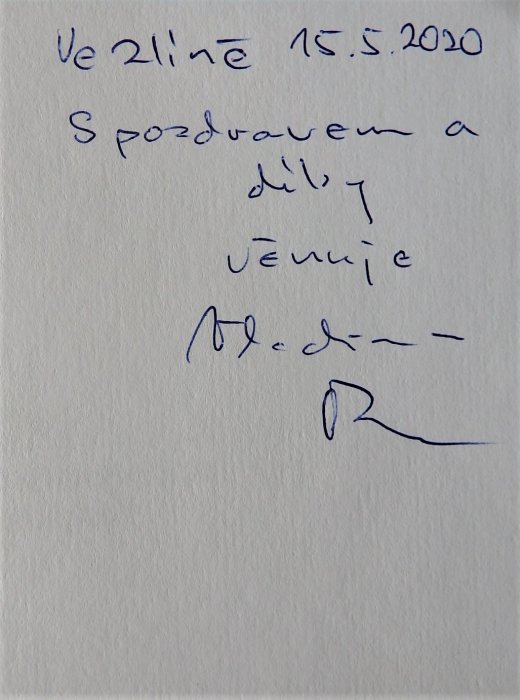 Ve Zlíně 15.5.2020
S pozdravem a
díky
věnuje